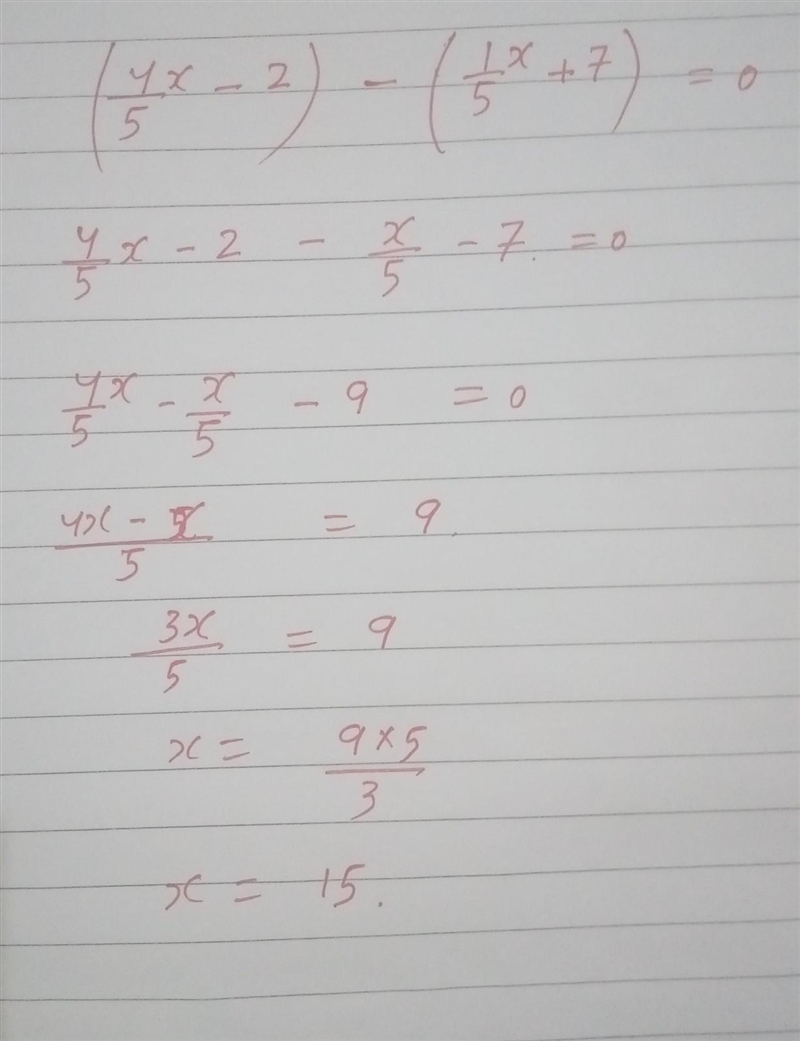 (4/5 x - 2) - (1/5 x + 7) = 0
4/5 x - 2 - x/5 - 7. = 0
4/5 x - x/5 - 9 = 0
4x - x / 5 = 9.
3x/5 = 9
x = 9 × 5 / 3
x = 15.